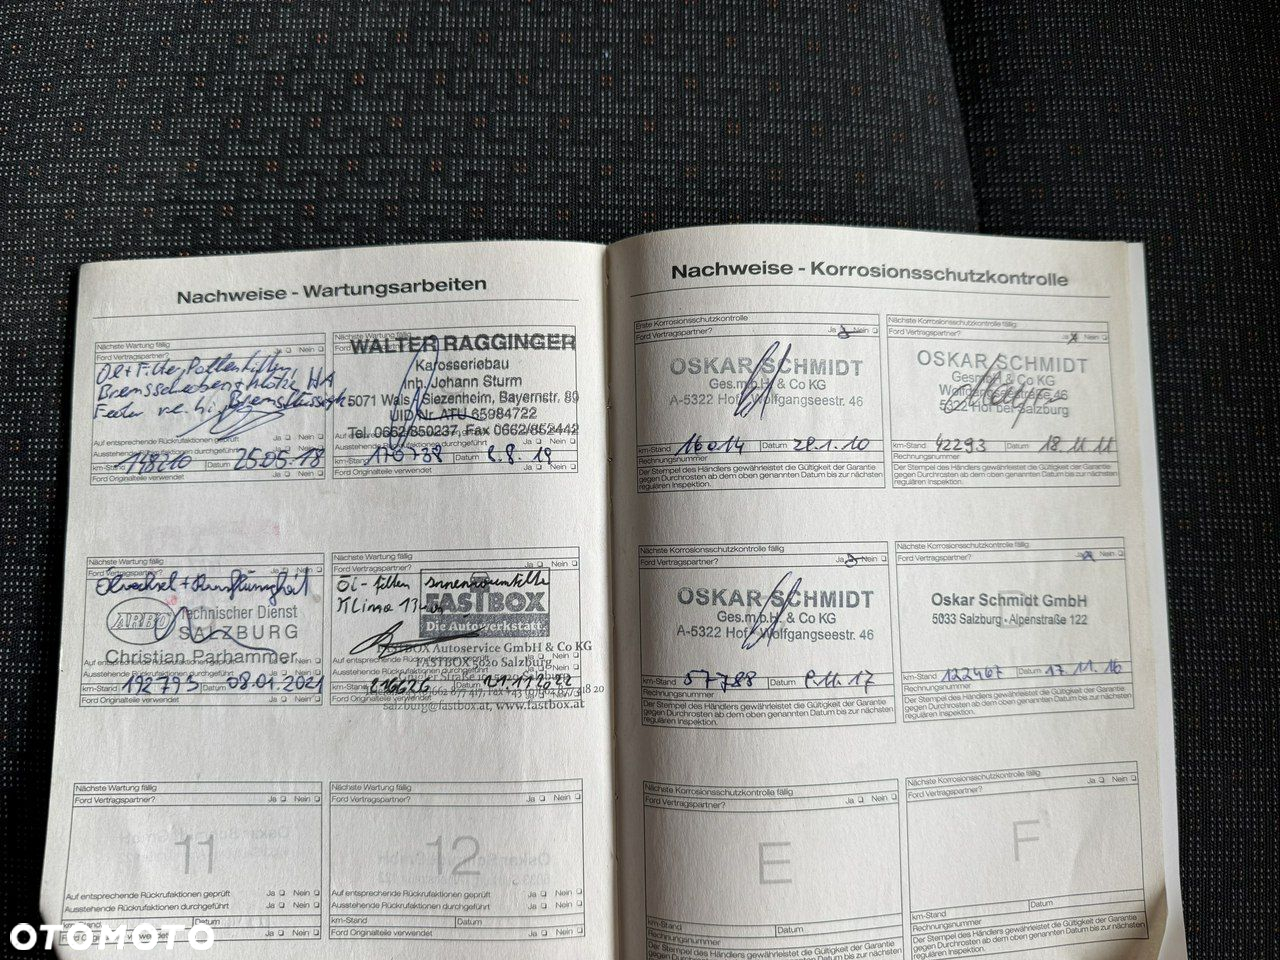 Nachweise - Wartungsarbeiten
Nächste Wartung fällig
Ford Vertragspartner? Ja Nein
Öl + Filter, Pollenfilter
Bremsscheiben + Klötze HA
Feder re. hi., Bremsflüssigk.
Auf entsprechende Rückrufaktionen geprüft Ja Nein
Ausstehende Rückrufaktionen durchgeführt Ja Nein
km-Stand 148210 Datum 25.05.18
Ford Originalteile verwendet Ja Nein
Nächste Wartung fällig
WALTER RAGGINGER
Karosseriebau
Inh. Johann Sturm
5071 Wals / Siezenheim, Bayernstr. 89
UID Nr. ATU 65984722
Tel. 0662/850237, Fax 0662/852442
km-Stand 170738 Datum 8.8.19
Ford Originalteile verwendet Ja Nein
Ford Vertragspartner? Ja Nein
Ölwechsel +
ARBÖ Technischer Dienst
SALZBURG
Christian Parhammer
km-Stand 192793 Datum 08.01.2021
Ford Originalteile verwendet Ja Nein
Nächste Wartung fällig
Öl-filter Innenraumfilter
Klima
FASTBOX
Die Autowerkstatt.
FASTBOX Autoservice GmbH & Co KG
FASTBOX 5020 Salzburg
km-Stand 216626 Datum
salzburg@fastbox.at, www.fastbox.at
Nächste Wartung fällig
Ford Vertragspartner? Ja Nein
11
Auf entsprechende Rückrufaktionen geprüft Ja Nein
Ausstehende Rückrufaktionen durchgeführt Ja Nein
km-Stand Datum
Ford Originalteile verwendet Ja Nein
Nächste Wartung fällig
Ford Vertragspartner? Ja Nein
12
Auf entsprechende Rückrufaktionen geprüft Ja Nein
Ausstehende Rückrufaktionen durchgeführt Ja Nein
km-Stand Datum
Ford Originalteile verwendet Ja Nein
Nachweise - Korrosionsschutzkontrolle
Erste Korrosionsschutzkontrolle
Ford Vertragspartner? Ja Nein
OSKAR SCHMIDT
Ges.m.b.H. & Co KG
A-5322 Hof • Wolfgangseestr. 46
km-Stand 16014 Datum 28.1.10
Rechnungsnummer
Der Stempel des Händlers gewährleistet die Gültigkeit der Garantie
gegen Durchrosten ab dem oben genannten Datum bis zur nächsten
regulären Inspektion.
Nächste Korrosionsschutzkontrolle fällig
Ford Vertragspartner? Ja Nein
OSKAR SCHMIDT
GesmbH & Co KG
Wolfgangseestraße 46
5322 Hof bei Salzburg
km-Stand 42293 Datum 18.11.11
Rechnungsnummer
Der Stempel des Händlers gewährleistet die Gültigkeit der Garantie
gegen Durchrosten ab dem oben genannten Datum bis zur nächsten
regulären Inspektion.
Nächste Korrosionsschutzkontrolle fällig
Ford Vertragspartner? Ja Nein
OSKAR SCHMIDT
Ges.m.b.H. & Co KG
A-5322 Hof • Wolfgangseestr. 46
km-Stand 57788 Datum
Rechnungsnummer
Der Stempel des Händlers gewährleistet die Gültigkeit der Garantie
gegen Durchrosten ab dem oben genannten Datum bis zur nächsten
regulären Inspektion.
Nächste Korrosionsschutzkontrolle fällig
Ford Vertragspartner? Ja Nein
Oskar Schmidt GmbH
5033 Salzburg • Alpenstraße 122
km-Stand 122467 Datum 17.11.16
Rechnungsnummer
Der Stempel des Händlers gewährleistet die Gültigkeit der Garantie
gegen Durchrosten ab dem oben genannten Datum bis zur nächsten
regulären Inspektion.
Nächste Korrosionsschutzkontrolle fällig
Ford Vertragspartner? Ja Nein
E
km-Stand Datum
Rechnungsnummer
Der Stempel des Händlers gewährleistet die Gültigkeit der Garantie
Nächste Korrosionsschutzkontrolle fällig
Ford Vertragspartner? Ja Nein
F
km-Stand Datum
Rechnungsnummer
Der Stempel des Händlers gewährleistet die Gültigkeit der Garantie
gegen Durchrosten ab dem oben genannten Datum bis zur nächsten
regulären Inspektion.
OTOMOTO